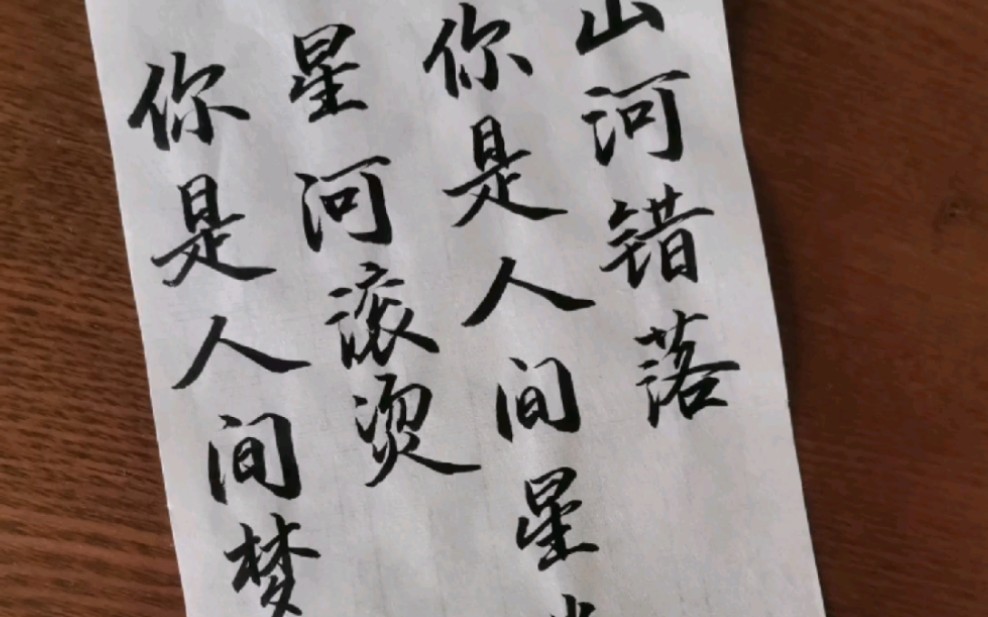 山河错落
你是人间星
星河滚烫
你是人间梦